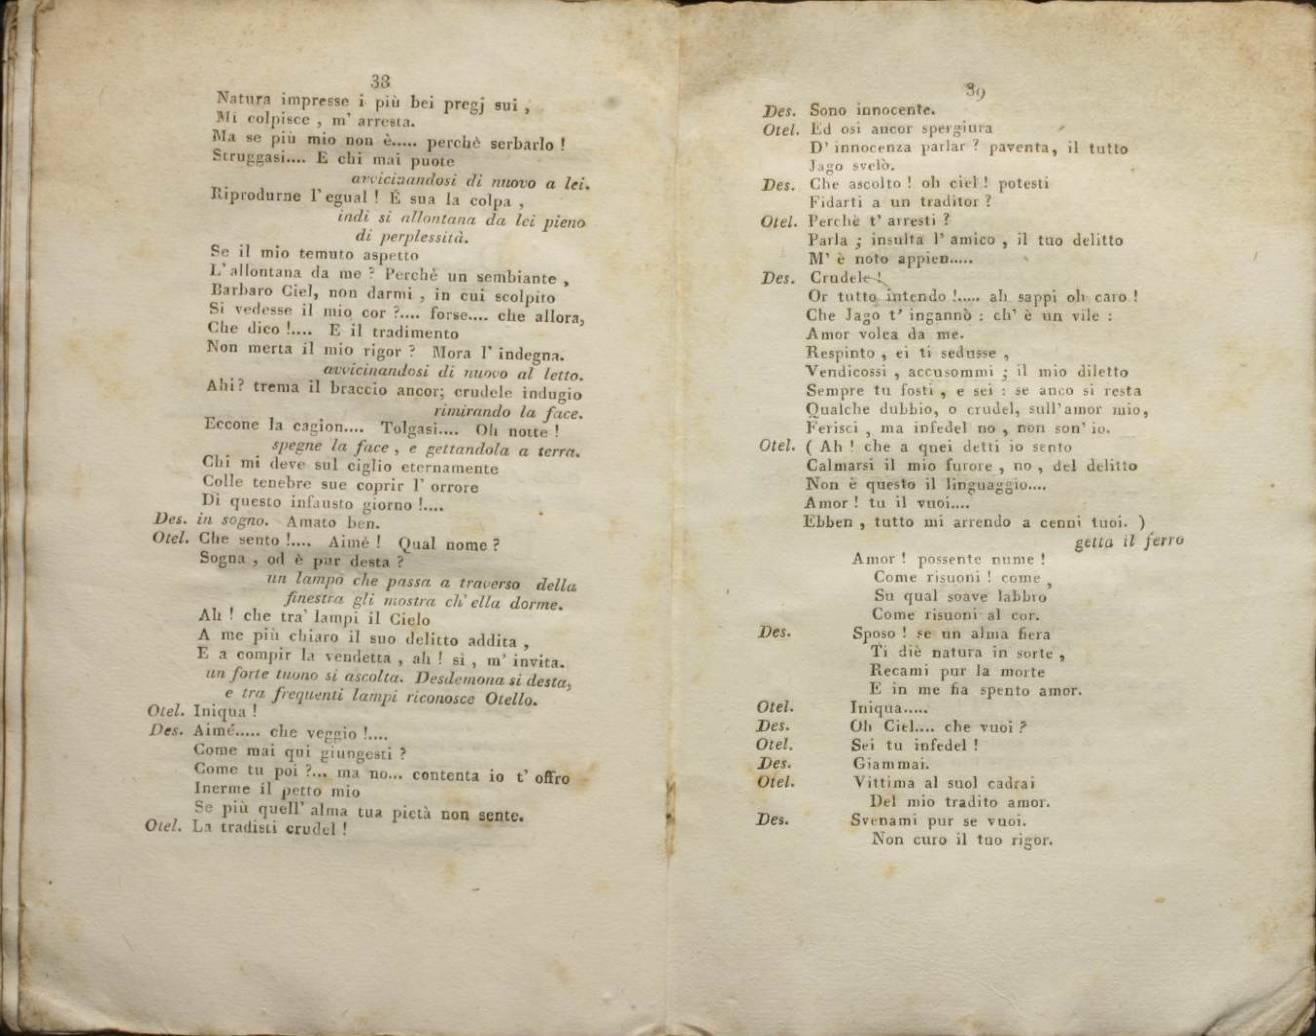 38
Natura impresse i più bei pregj sui ,
Mi colpisce , m' arresta.
Ma se più mio non è..... perchè serbarlo !
Struggasi.... E chi mai puote
avvicinandosi di nuovo a lei.
Riprodurne l' egual ! È sua la colpa ,
indi si allontana da lei pieno
di perplessità.
Se il mio temuto aspetto
L' allontana da me ? Perchè un sembiante ,
Barbaro Ciel, non darmi , in cui scolpito
Si vedesse il mio cor ?.... forse.... che allora,
Che dico !.... E il tradimento
Non merta il mio rigor ? Mora l' indegna.
avvicinandosi di nuovo al letto.
Ahi? trema il braccio ancor; crudele indugio
rimirando la face.
Eccone la cagion.... Tolgasi.... Oh notte !
spegne la face , e gettandola a terra.
Chi mi deve sul ciglio eternamente
Colle tenebre sue coprir l' orrore
Di questo infausto giorno !....
Des. in sogno. Amato ben.
Otel. Che sento !.... Aimé ! Qual nome ?
Sogna , od è pur desta ?
un lampo che passa a traverso della
finestra gli mostra ch' ella dorme.
Ah ! che tra' lampi il Cielo
A me più chiaro il suo delitto addita ,
E a compir la vendetta , ah ! si , m' invita.
un forte tuono si ascolta. Desdemona si desta,
e tra frequenti lampi riconosce Otello.
Otel. Iniqua !
Des. Aimé..... che veggio !....
Come mai qui giungesti ?
Come tu poi ?... ma no... contenta io t' offro
Inerme il petto mio
Se più quell' alma tua pietà non sente.
Otel. La tradisti crudel !
39
Des. Sono innocente.
Otel. Ed osi ancor spergiura
D' innocenza parlar ? paventa, il tutto
Jago svelò.
Des. Che ascolto ! oh ciel ! potesti
Fidarti a un traditor ?
Otel. Perchè t' arresti ?
Parla ; insulta l' amico , il tuo delitto
M' è noto appien.....
Des. Crudele !
Or tutto intendo !..... ah sappi oh caro !
Che Jago t' ingannò : ch' è un vile :
Amor volea da me.
Respinto , ei ti sedusse ,
Vendicossi , accusommi ; il mio diletto
Sempre tu fosti , e sei : se anco si resta
Qualche dubbio, o crudel, sull' amor mio,
Ferisci , ma infedel no , non son' io.
Otel. ( Ah ! che a quei detti io sento
Calmarsi il mio furore , no , del delitto
Non è questo il linguaggio....
Amor ! tu il vuoi....
Ebben , tutto mi arrendo a cenni tuoi. )
getta il ferro
Amor ! possente nume !
Come risuoni ! come ,
Su qual soave labbro
Come risuoni al cor.
Des. Sposo ! se un alma fiera
Ti diè natura in sorte ,
Recami pur la morte
E in me fia spento amor.
Otel. Iniqua.....
Des. Oh Ciel.... che vuoi ?
Otel. Sei tu infedel !
Des. Giammai.
Otel. Vittima al suol cadrai
Del mio tradito amor.
Des. Svenami pur se vuoi.
Non curo il tuo rigor.